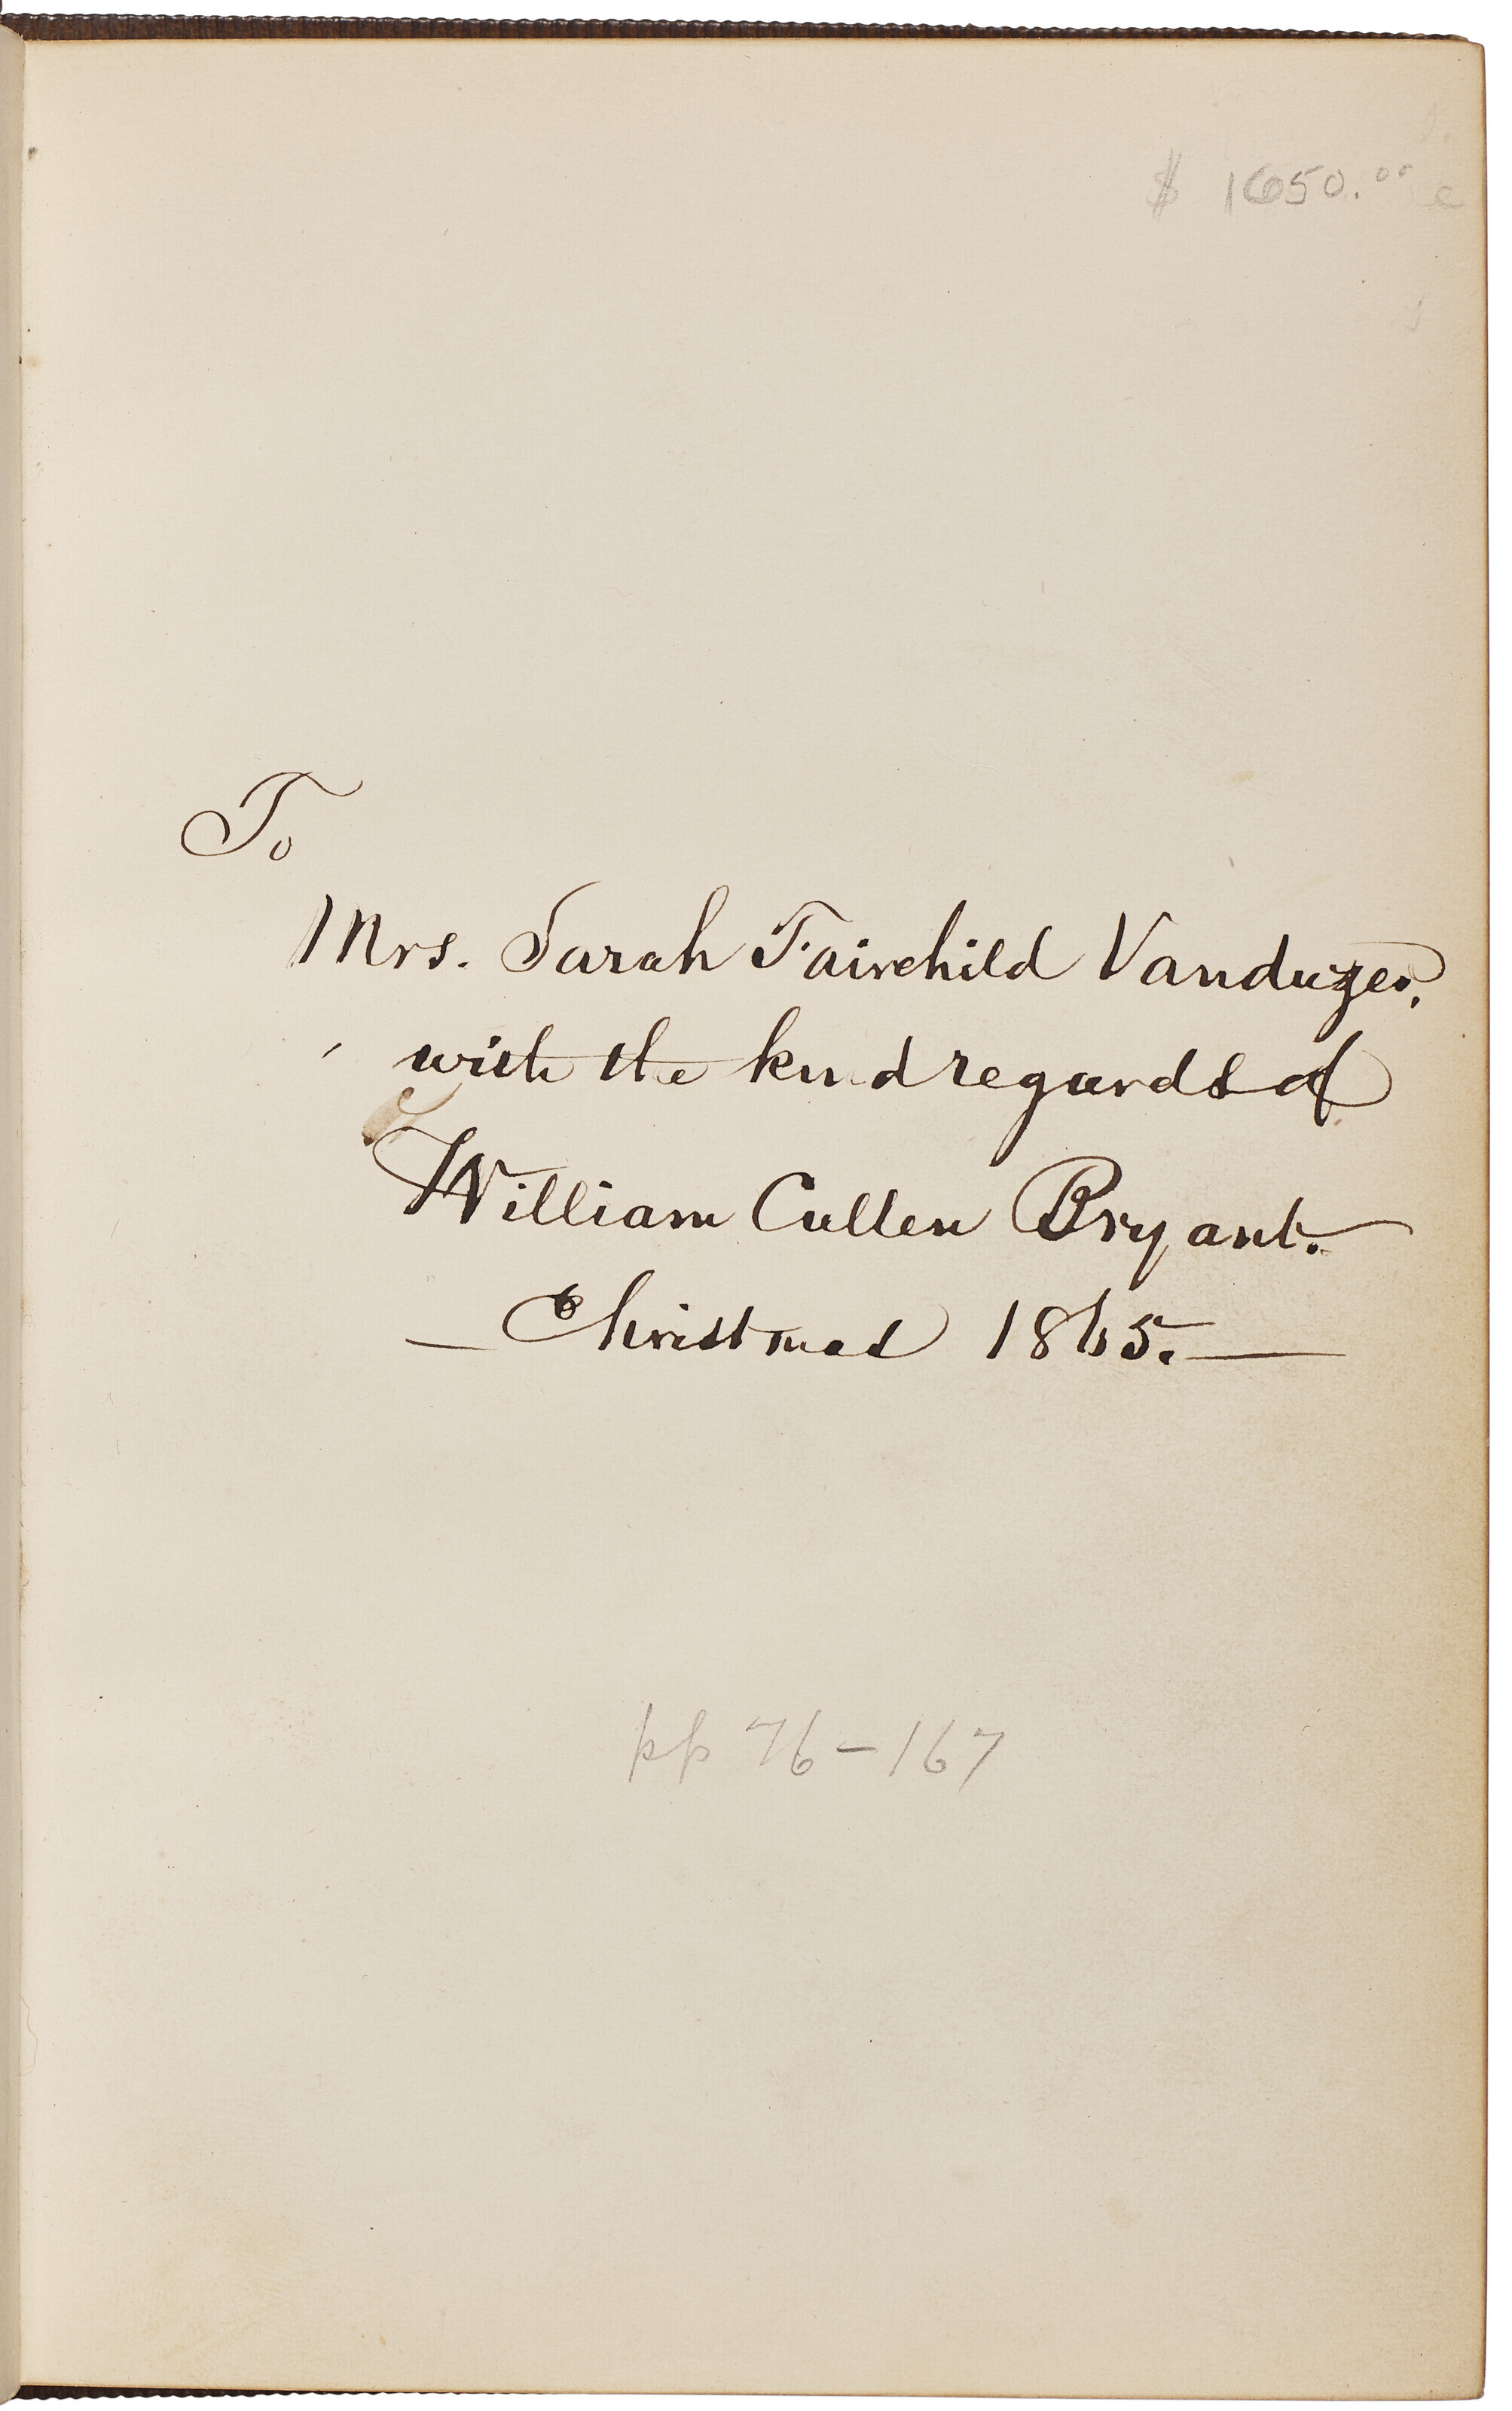 $ 1650.00
To
Mrs. Sarah Fairchild Vanduzer,
with the kind regards of
William Cullen Bryant.
— Christmas 1865. —
pp 76-167